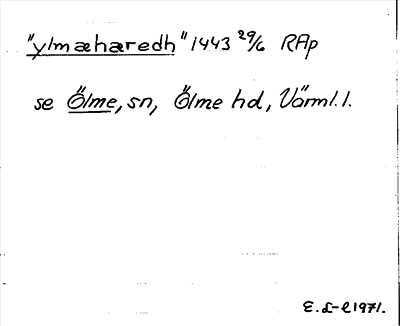 "ylmæhæredh" 1443 29/6 RAp
se Ölme, sn, Ölme hd, Värml. l.
E. L-l 1971.